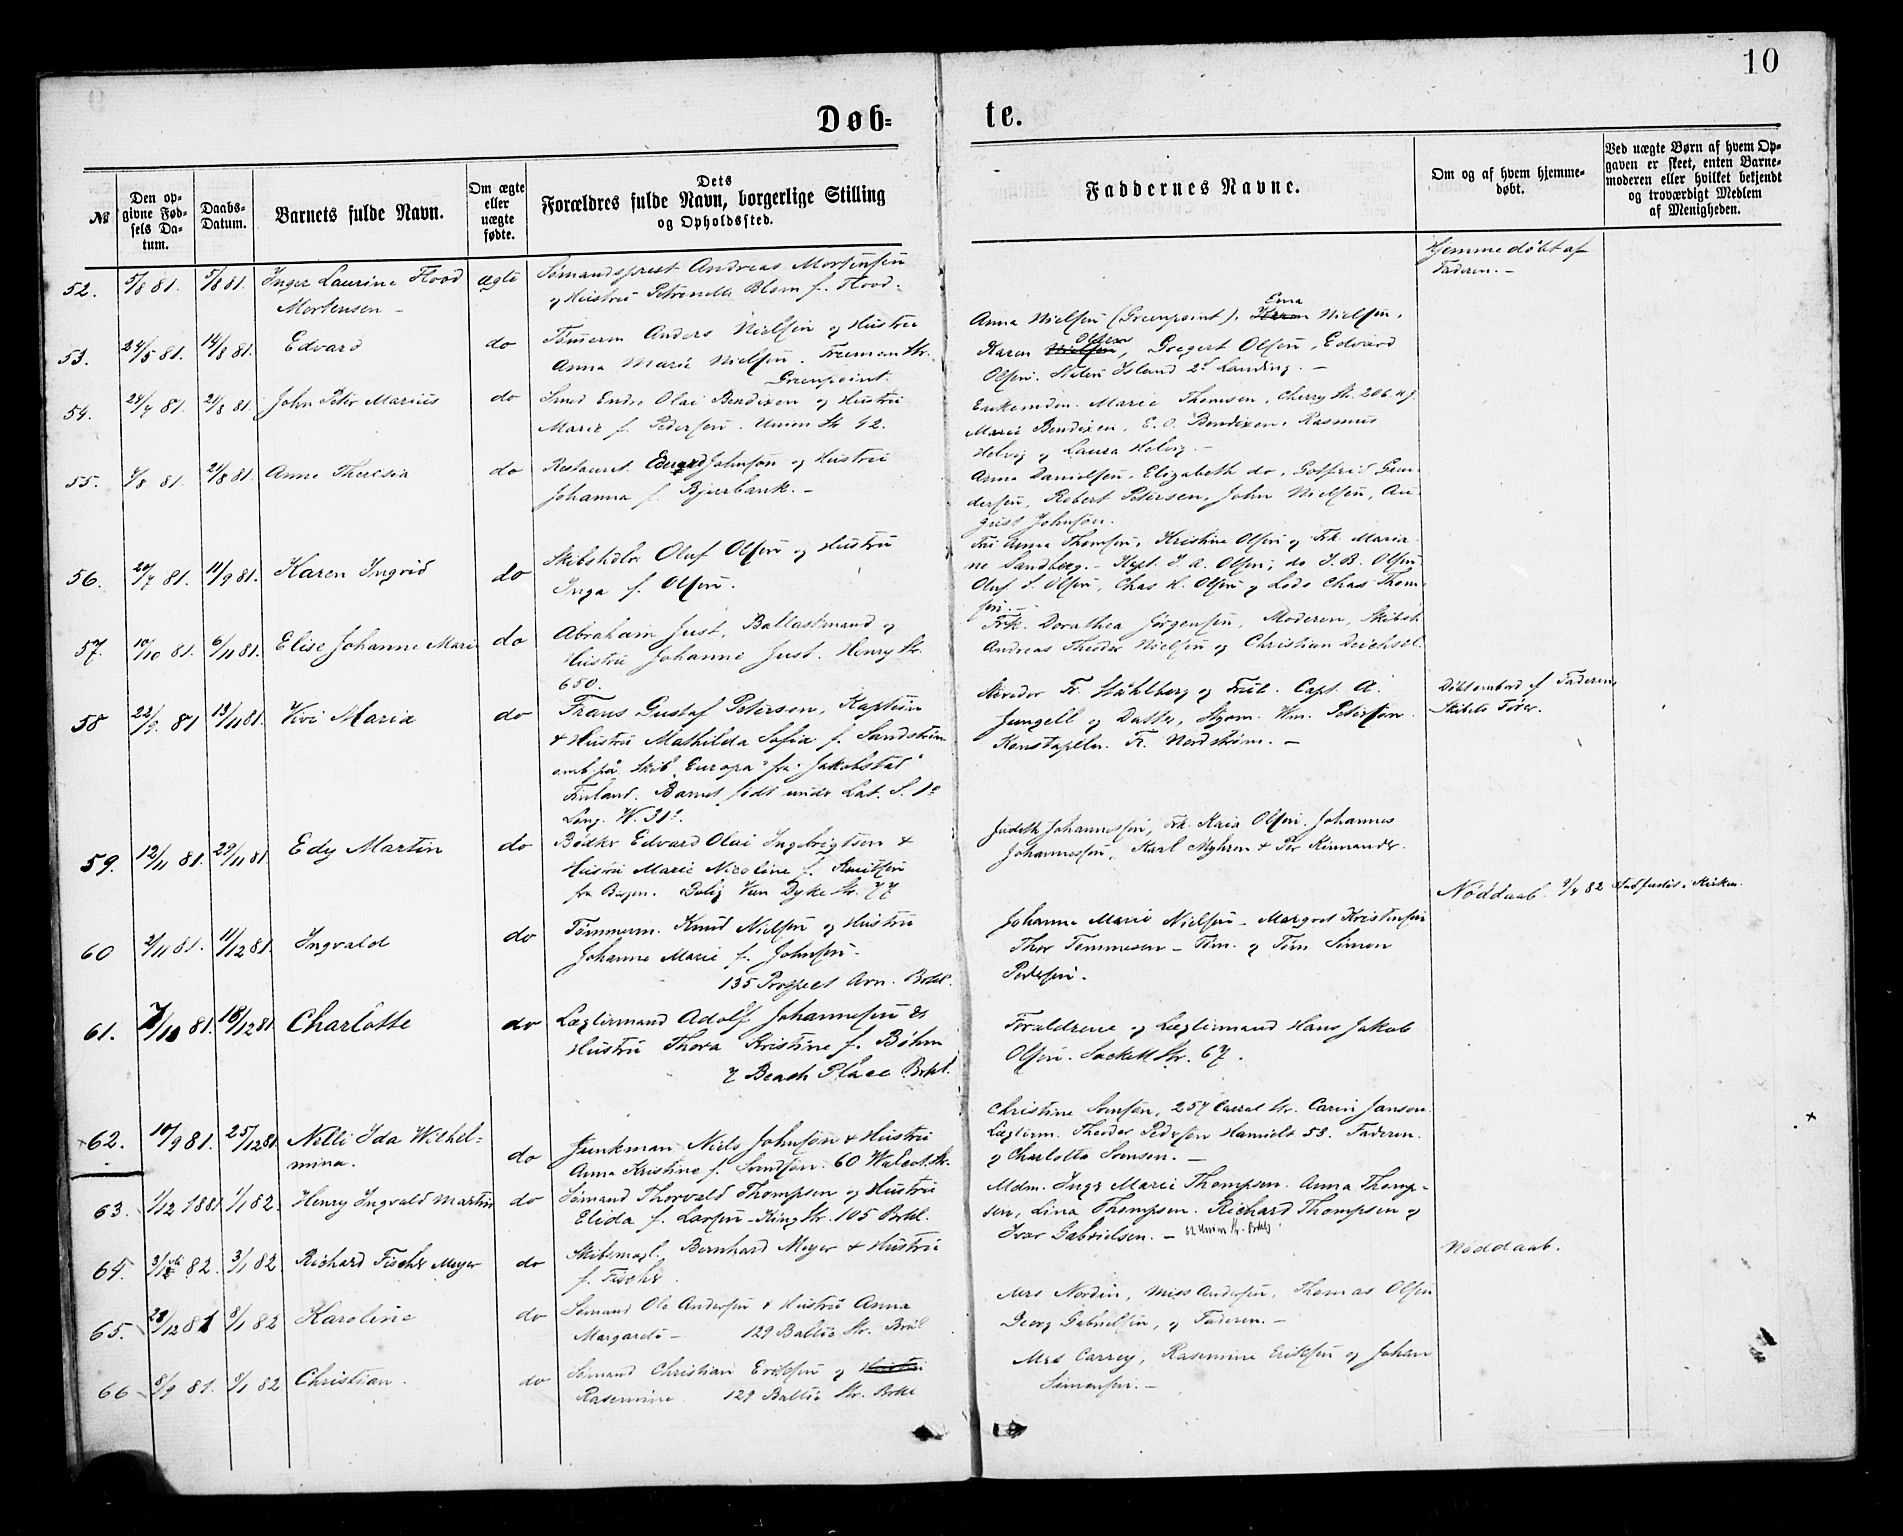 10
Døb=
te.
№
Den op=
givne Fød=
sels Da=
tum.
Daabs=
Datum.
Barnets fulde Navn.
Om ægte
eller
uægte
fødte.
Dets
Forældres fulde Navn, borgerlige Stilling
og Opholdssted.
Faddernes Navne.
Om og af hvem hjemme=
døbt.
Ved uægte Børn af hvem Op=
gaven er skeet, enten Barne=
moderen eller hvilket bekjendt
og troværdigt Medlem
af Menigheden.
52. 5/8 81. 7/8 81. Inger Laurine Flood
Mortensen –
ægte
Sømandsprest Andreas Mortensen
og Hustru Petronelle Blom f. Flood.
Hjemmedøbt af
Faderen. –
53. 24/5 81. 14/8 81. Edvard
do
Tømerm Anders Nielsen og Hustru
Anna Marie Nielsen. Freeman Str.
Greenpoint.
Anna Nielsen (Greenpoint), Ema Nielsen,
Karen Olsen, Gregert Olsen, Edvard
Olsen. Staten Island 2d Landing. –
54. 24/7 81. 21/8 81. John Peter Marius
do
Smed Endre Olai Bendixen og Hustru
Marie f. Pedersen. Union Str 42.
Enkemden. Marie Thomsen, Cherry Str. 206 N.Y.
Marie Bendixen, E. O. Bendixen, Rasmus
Helvig og Laura Helvig. –
55. 7/8 81. 21/8 81. Anne Theresia
do
Restaurat. Edvard Johnson og Hustru
Johanna f. Bjurbank. –
Anna Danielsen, Elizabeth do, Gotfrid Gun
dersen, Robert Petersen, John Nielsen, Au
gust Johnson.
56. 20/7 81. 11/9 81. Karen Ingrid
do
Skibshdlr Oluf Olsen og Hustru
Inga f. Olsen.
Fru Anna Thomsen, Kristine Olsen og Frk. Maria
ne Sandberg. – Kapt. J. A. Olsen, do J. B. Olsen
Oluf S. Olsen, Chas H. Olsen og Lods Chas Thom
sen. –
57. 10/10 81. 6/11 81. Elise Johanne Marie
do
Abraham Just, Ballastmand og
Hustru Johanne Just. Henry Str.
650.
Frk. Dorathea Jørgensen, Moderen, Skibsh
Andreas Theodor Nielsen og Christian Deichsel.
58 22/9. 81 13/11 81. Vivi Maria
do
Frans Gustaf Petersen, Kaptein
& Hustru Mathilda Sofia f. Sandström
omb på Skib "Europa" fra "Jakobstad"
Finland. Barnet født under Lat. S. 1°
Long. W. 31°.
Stevedor Fr. Ståhlberg og Frue. Capt. A.
Jungell og Datter, Styrm. Wm. Peterson
Konstapeln. Fr. Nordström. –
Døbt ombord af Faderen,
Skibets Fører.
59. 12/11 81. 29/11 81. Edy Martin
do
Bødker Edvard Olai Ingebrigtsen &
Hustru Marie Nicoline f. Knutsen
fra Bergen. Bolig Van Dyke Str. 77
Judith Johannessen, Frk. Kaia Olsen. Johannes
Johannessen, Karl Myhren & Per Kinnander.
Nøddaab. 9/4 82 stadfæstet i Kirken.
60 2/11 81. 11/12 81. Ingvald
do
Tømmerm. Knud Nielsen og Hustru
Johanne Marie f. Johnsen.
135 Prospect Avn. Brkl.
Johanne Marie Nielsen – Margret Kristensen
Thor Tommesen – Tøm. og Tøm Simon
Pedersen.
61. 7/10 81. 18/12 81. Charlotte
do
Lægtermand Adolf Johannesen &
Hustru Thora Kristine f. Bøhm
7 Beach Place Brkl.
Forældrene og Lægtermand Hans Jakob
Olsen. Sackett Str. 67.
62. 10/9 81. 25/12 81. Nelli Ida Wilhel=
mina.
do
Junkman Niels Johnson & Hustru
Anna Kristine f. Svendsen. 60 Walcot Str.
Christine Svensen, 257 Carrol Str. Carin Janson
Lægterm. Theodor Pedersen Hamilt 53. Faderen.
og Charlotta Svensen. –
63. 1/12 1881 1/1 82. Henry Ingvald Martin
do
Sømand Thorvald Thompsen og Hustru
Elida f. Larsen – King Str. 105 Brkl.
Mdm. Ingr Marie Thompsen. Anna Thomp-
sen, Lina Thompsen. Richard Thompsen og
Ivar Gabrielsen. – 62 Union Str. Brkl.
64. 82. 3/1 82 Richard Fischer Meyer
do
Skibsmægl. Bernhard Meyer & Hustru
f. Fischer.
Nøddaab.
65. 28/12 81 8/1 82 Karoline
do
Sømand Ole Andersen & Hustru Anna
Margarete – 129 Baltic Str. Brkl
Mrs Nordin, Miss Andersen, Thomas Olsen
Georg Gabrielsen, og Faderen. –
66 8/9 81. 9/1 82 Christian.
do
Sømand Christian Eriksen og
Rasemine 129 Baltic Str. Brkl
Mrs Carrey, Rasemine Eriksen og Johan
Simonsen. –